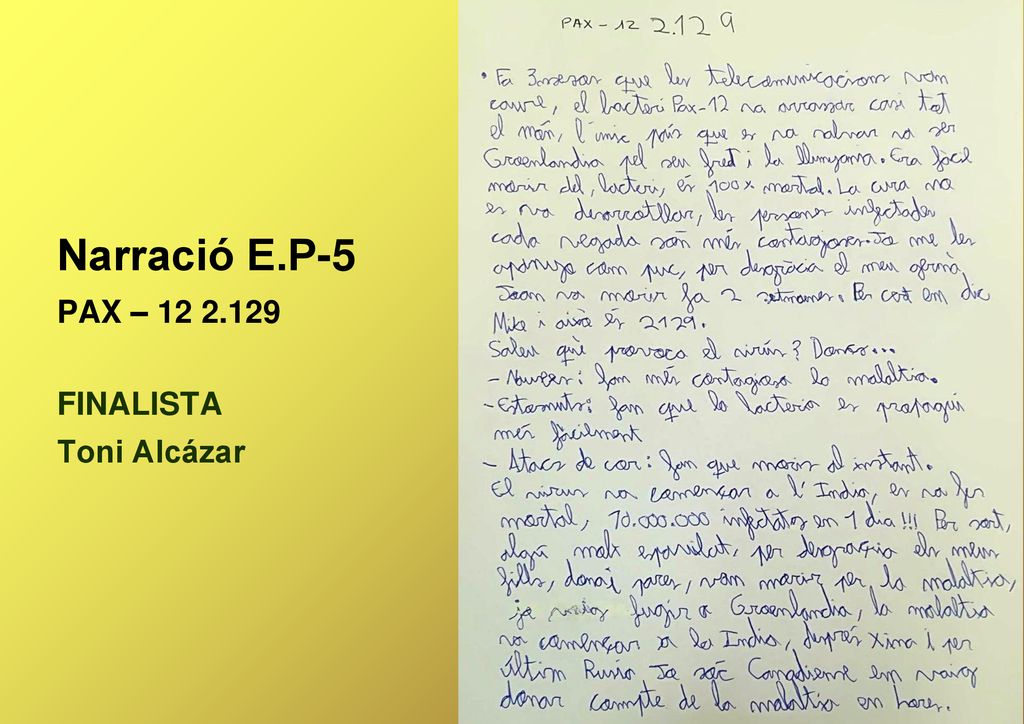 Narració E.P-5
PAX – 12 2.129
FINALISTA
Toni Alcázar
PAX - 12 2.129
• Fa 3 mesos que les telecomunicacions vam
caure, el bacteri Pax-12 va arrassar casi tot
el món, l'únic país que es va salvar va ser
Groenlandia pel seu fred i la llunyania. Era fàcil
morir del bacteri, és 100% mortal. La cura no
es va desarrotllar, les persones infectades
cada vegada són més contagioses. Jo me les
apanyo com puc, per desgràcia el meu
Joan va morir fa 2 setmanes. Per cert em dic
Mike i això és 2129.
Sabeu què provoca el virús? Doncs...
- Nauses: fan més contagiosa la malaltia.
- Estornuts: fan que la bacteria es propagui
més fàcilment
- Atacs de cor: fan que moris al instant.
El virus va començar a l'India, es va fer
mortal, 10.000.000 infectatos en 1 dia!!! Per sort,
algú molt espavilat, per desgracia els meus
fills, dona i pares, van morir per la malaltia,
jo vaig fugir a Groenlandia, la malaltia
va començar a la India, després Xina i per
últim Rusia Jo sóc Canadiense em vaig
donar compte de la malaltia en hores.